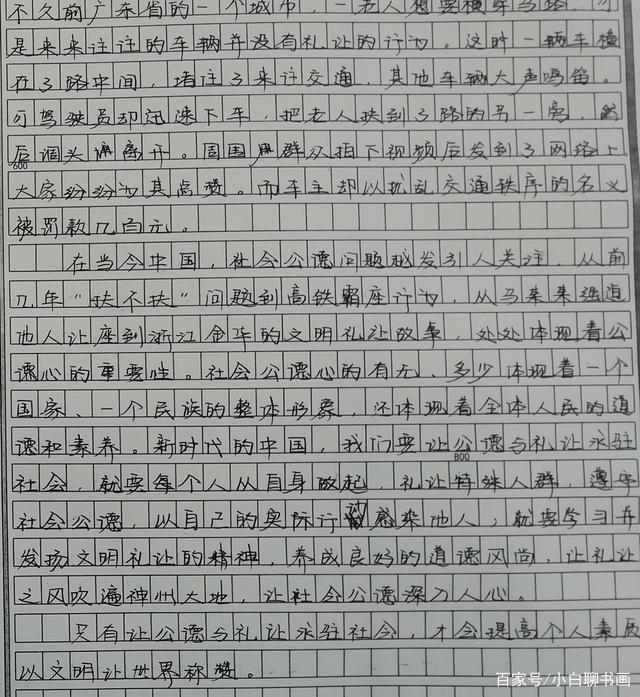 不久前广东省的一个城市，一老人想要横穿马路，可
是来来往往的车辆并没有礼让的行为。这时一辆车横
在了路中间，堵住了来往交通，其他车辆大声鸣笛。
可驾驶员却迅速下车，把老人扶到了路的另一旁，然
后调头离开。周围群众拍下视频后发到了网络上
600
大家纷纷为其点赞。而车主却以扰乱交通秩序的名义
被罚款几百元。
在当今中国，社会公德问题越发引人关注，从前
几年“扶不扶”问题到高铁霸座行为，从马来来强迫
他人让座到浙江金华的文明礼让故事，处处体现着公
德心的重要性。社会公德心的有无，多少体现着一个
国家、一个民族的整体形象，还体现着全体人民的道
德和素养。新时代的中国，我们要让公德与礼让永驻
800
社会，就要每个人从自身做起，礼让特殊人群，遵守
社会公德，以自己的实际行动感染他人，就要学习并
发扬文明礼让的精神，养成良好的道德风尚，让礼让
之风吹遍神州大地，让社会公德深入人心。
只有让公德与礼让永驻社会，才会提高个人素质
以文明让世界称赞。
百家号/小白聊书画